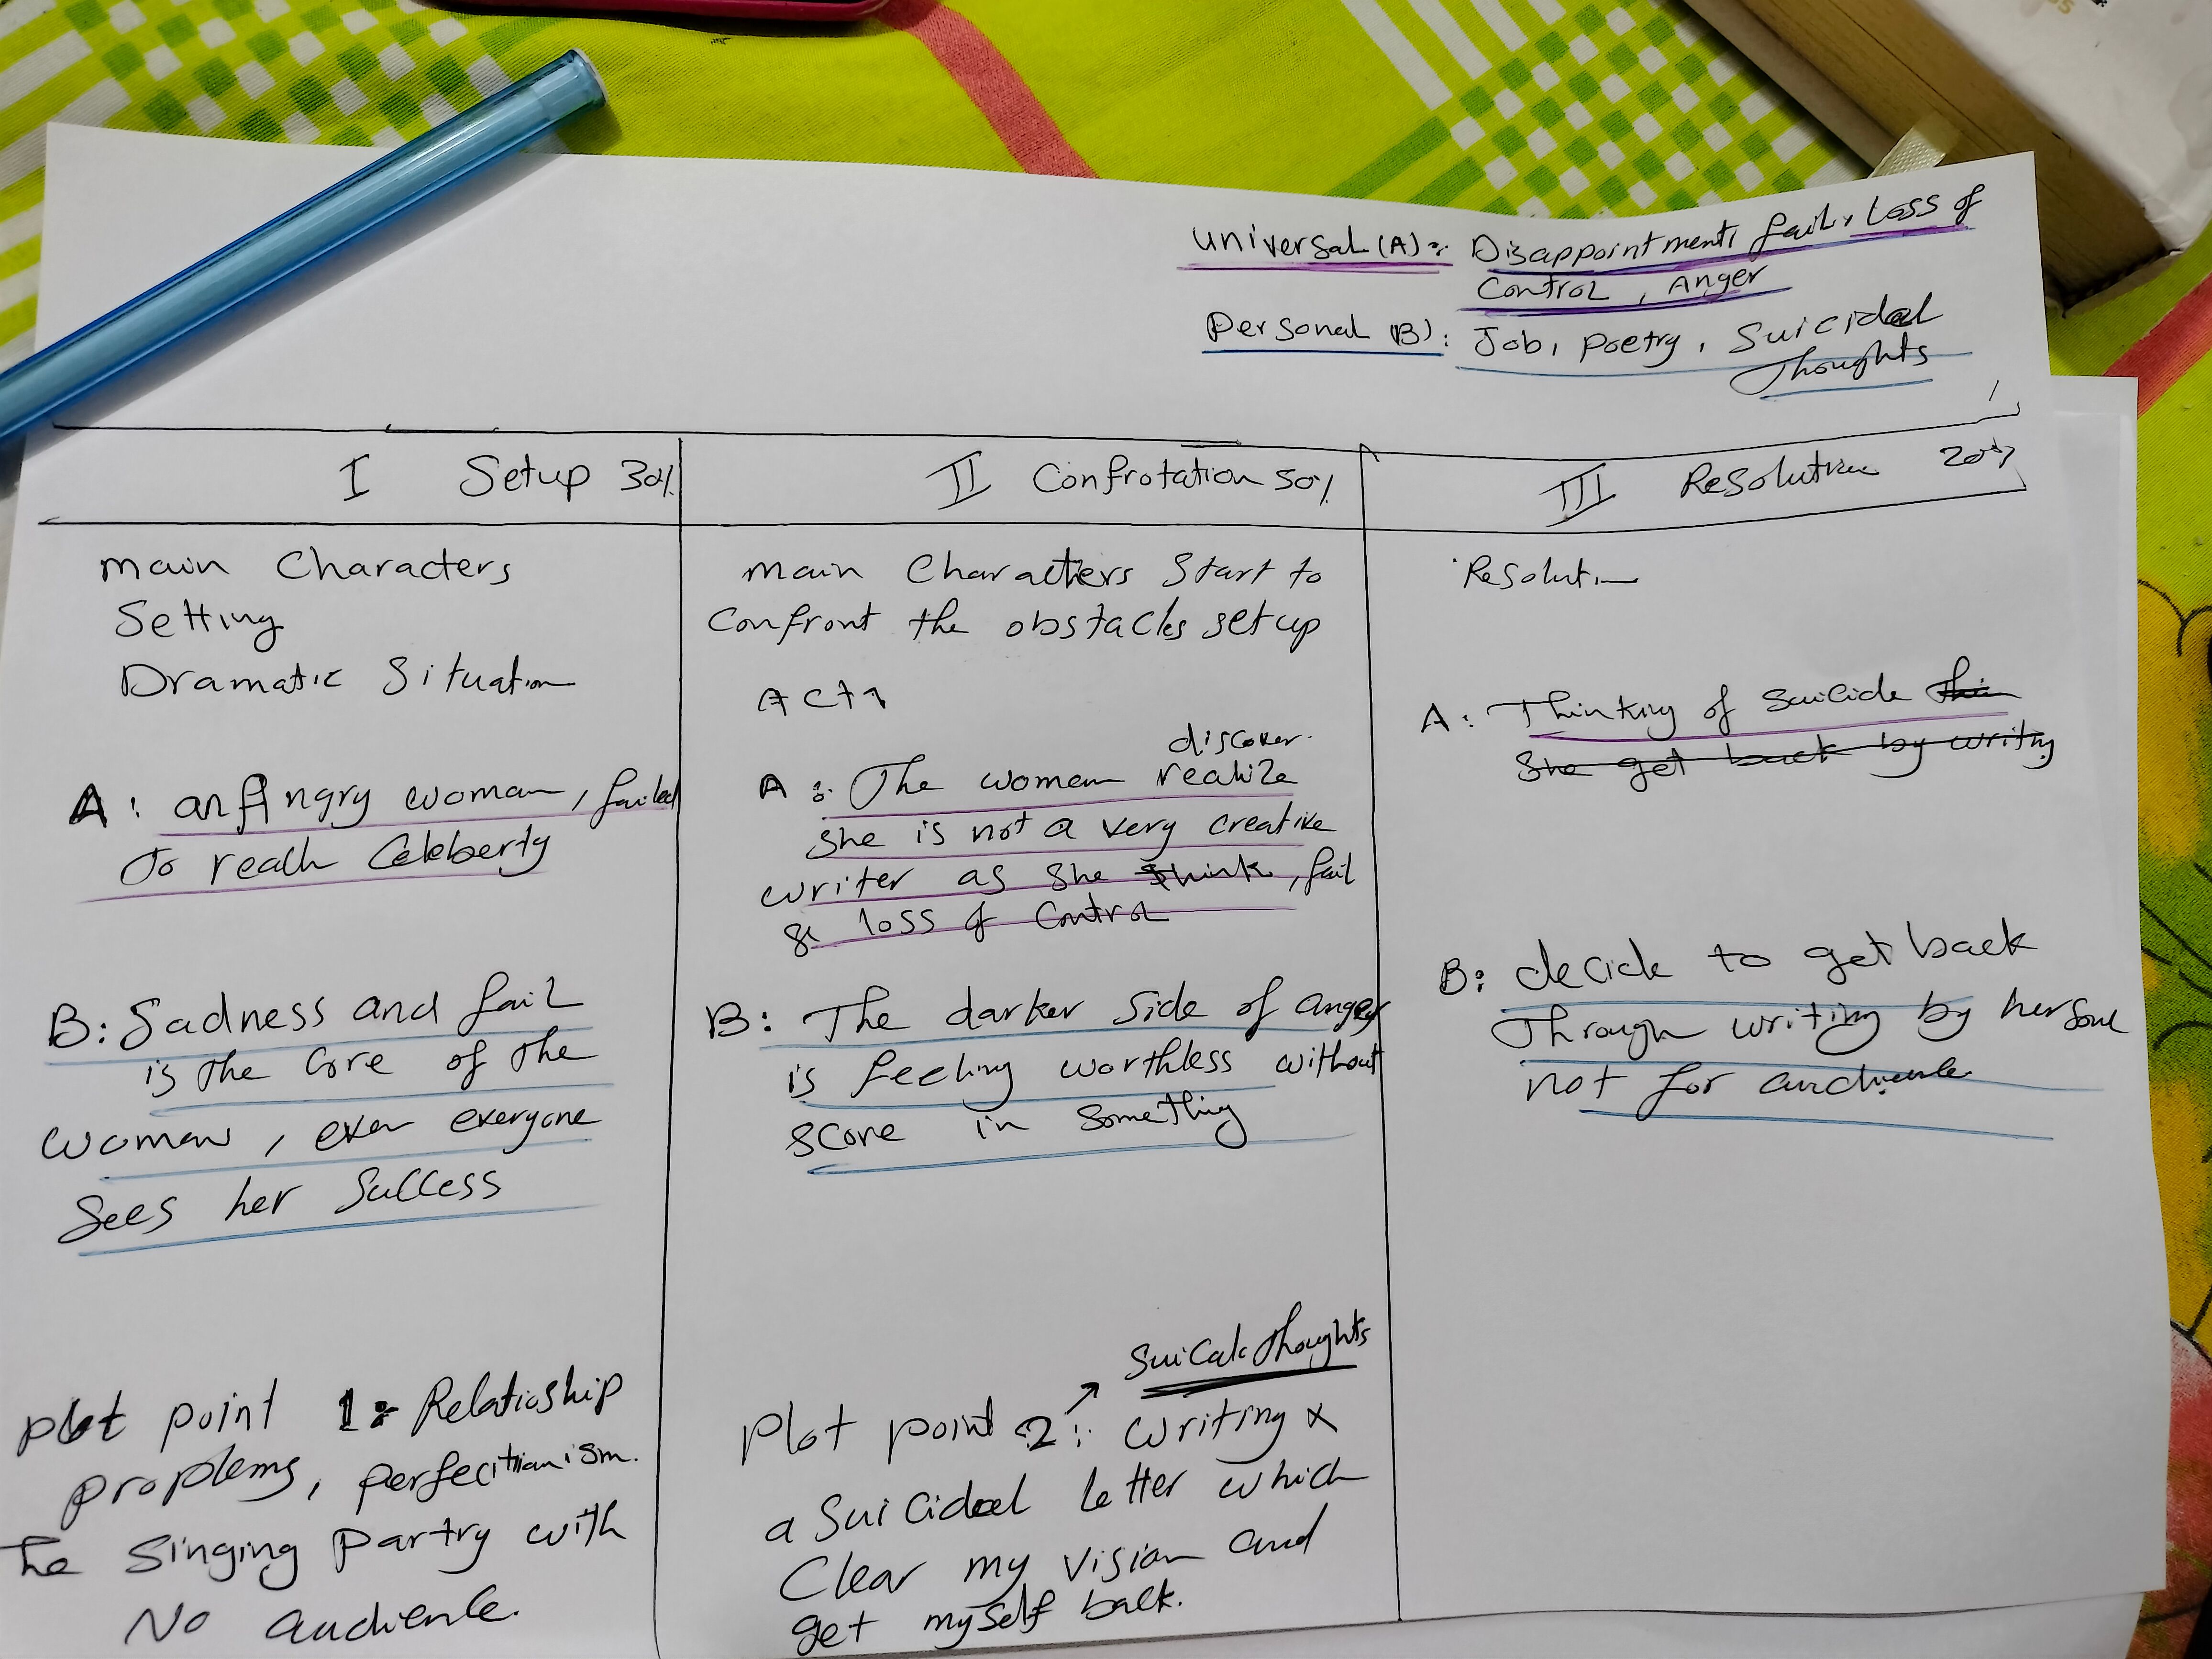 Universal (A): Disappointment, fail, Loss of
Control, Anger
Personal (B): Job, Poetry, Suicidal
Thoughts
I Setup 30%
main Characters
Setting
Dramatic Situation
A: an Angry woman, failed
To reach Celeberty
B: Sadness and fail
is the Core of the
woman, even everyone
Sees her Success
plot point 1: Relatioship
proplems, perfecitianism.
The Singing Partry with
No audience.
II Confrotation 50%
main Characters Start to
Confront the obstacles setup
ACT1
discover
A: The women realize
she is not a very creative
writer as she think, fail
& loss of Control
B: The darker Side of anger
is feeling worthless without
score in something
Suical Thoughts
Plot point 2: writing x
a Suicidal letter which
Clear my vision and
get myself back.
III Resolution 20%
Resolution
A: Thinking of Suicide
she get back by writing
B: decide to get back
Through writing by her soul
not for audience